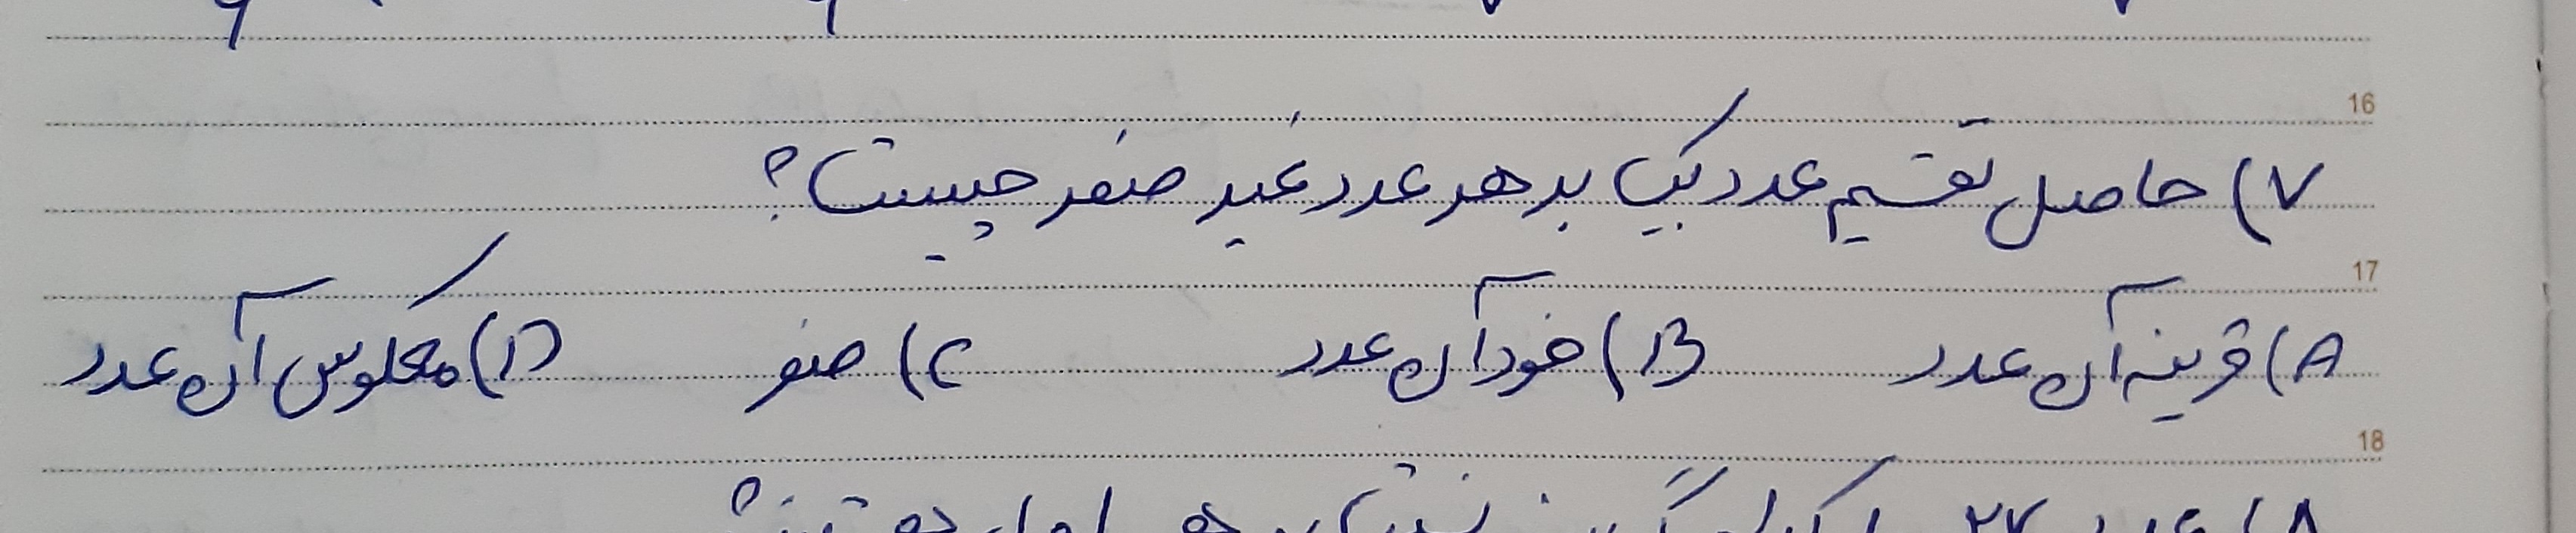 16
۷) حاصل تقسیم عدد یک بر هر عدد غیر صفر چیست؟
17
A) قرینه آن عدد B) خود آن عدد C) صفر D) معکوس آن عدد
18